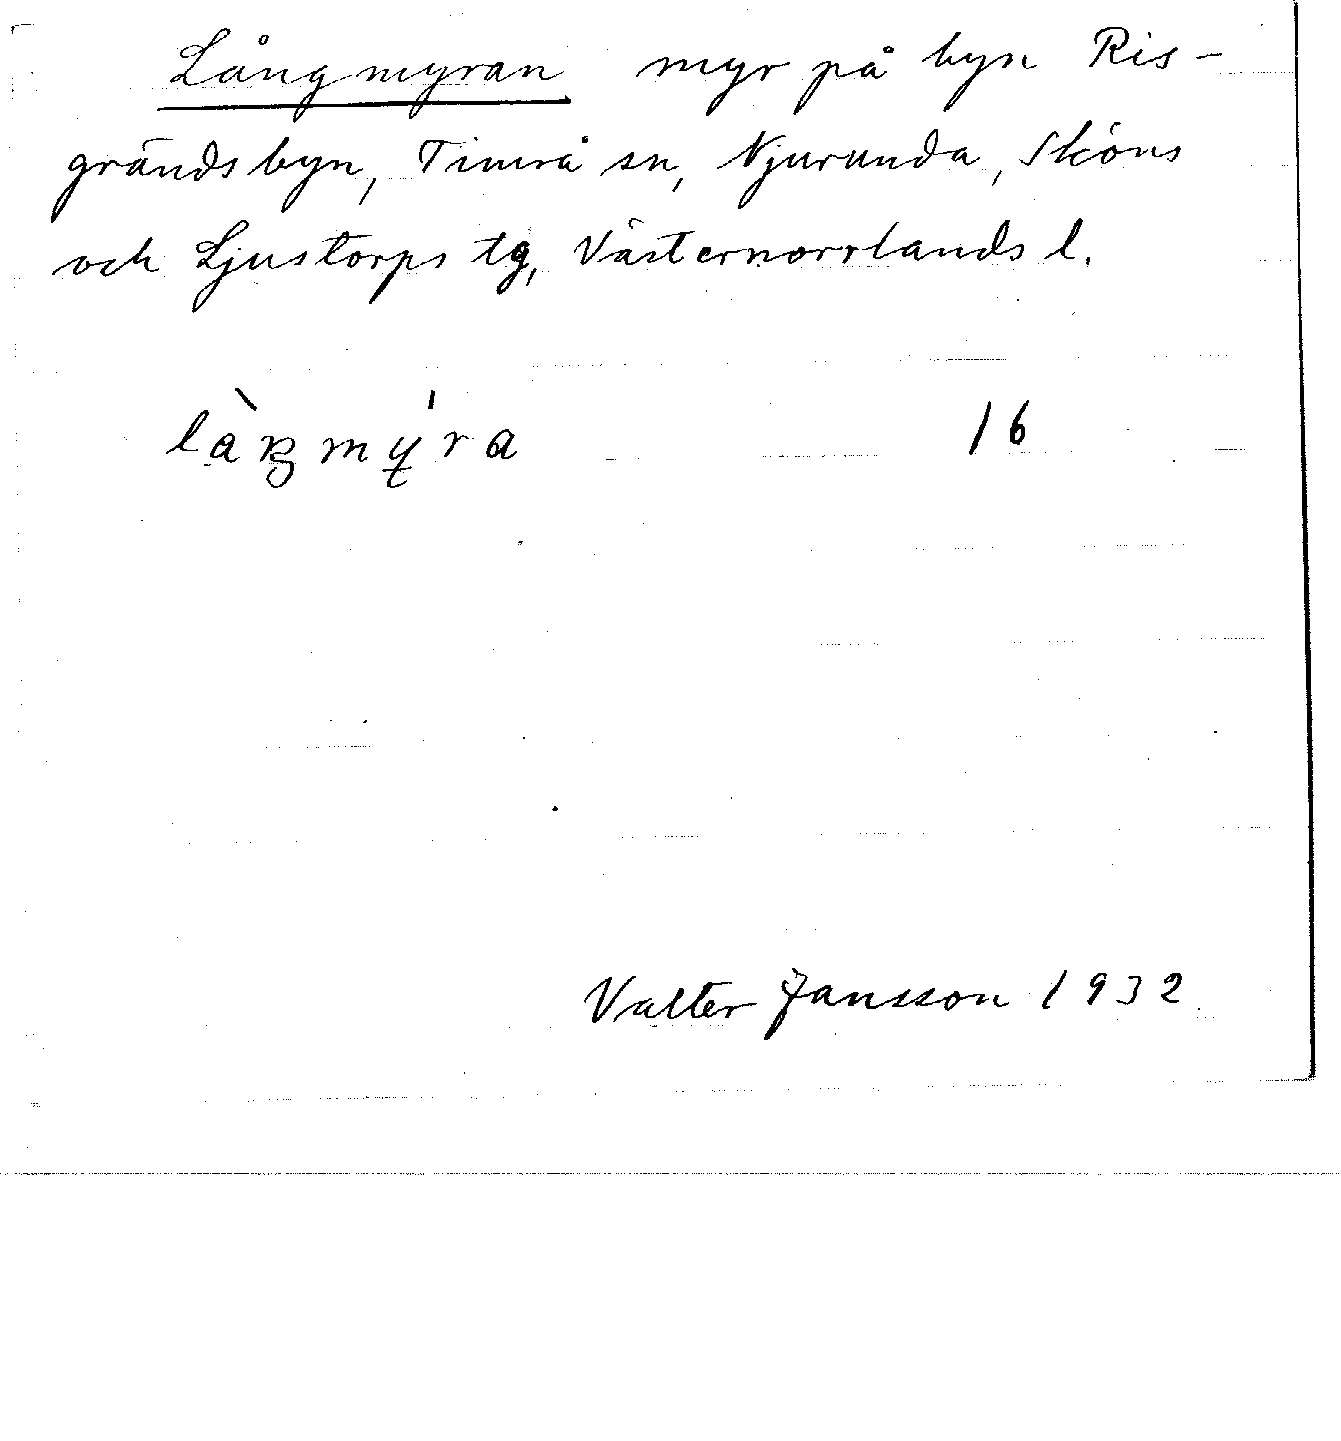 Långmyran myr på byn Ris-
grändsbyn, Timrå sn, Njurunda, Sköns
och Ljustorps tg, Västernorrlands l.
làŋmýra 16
Valter Jansson 1932